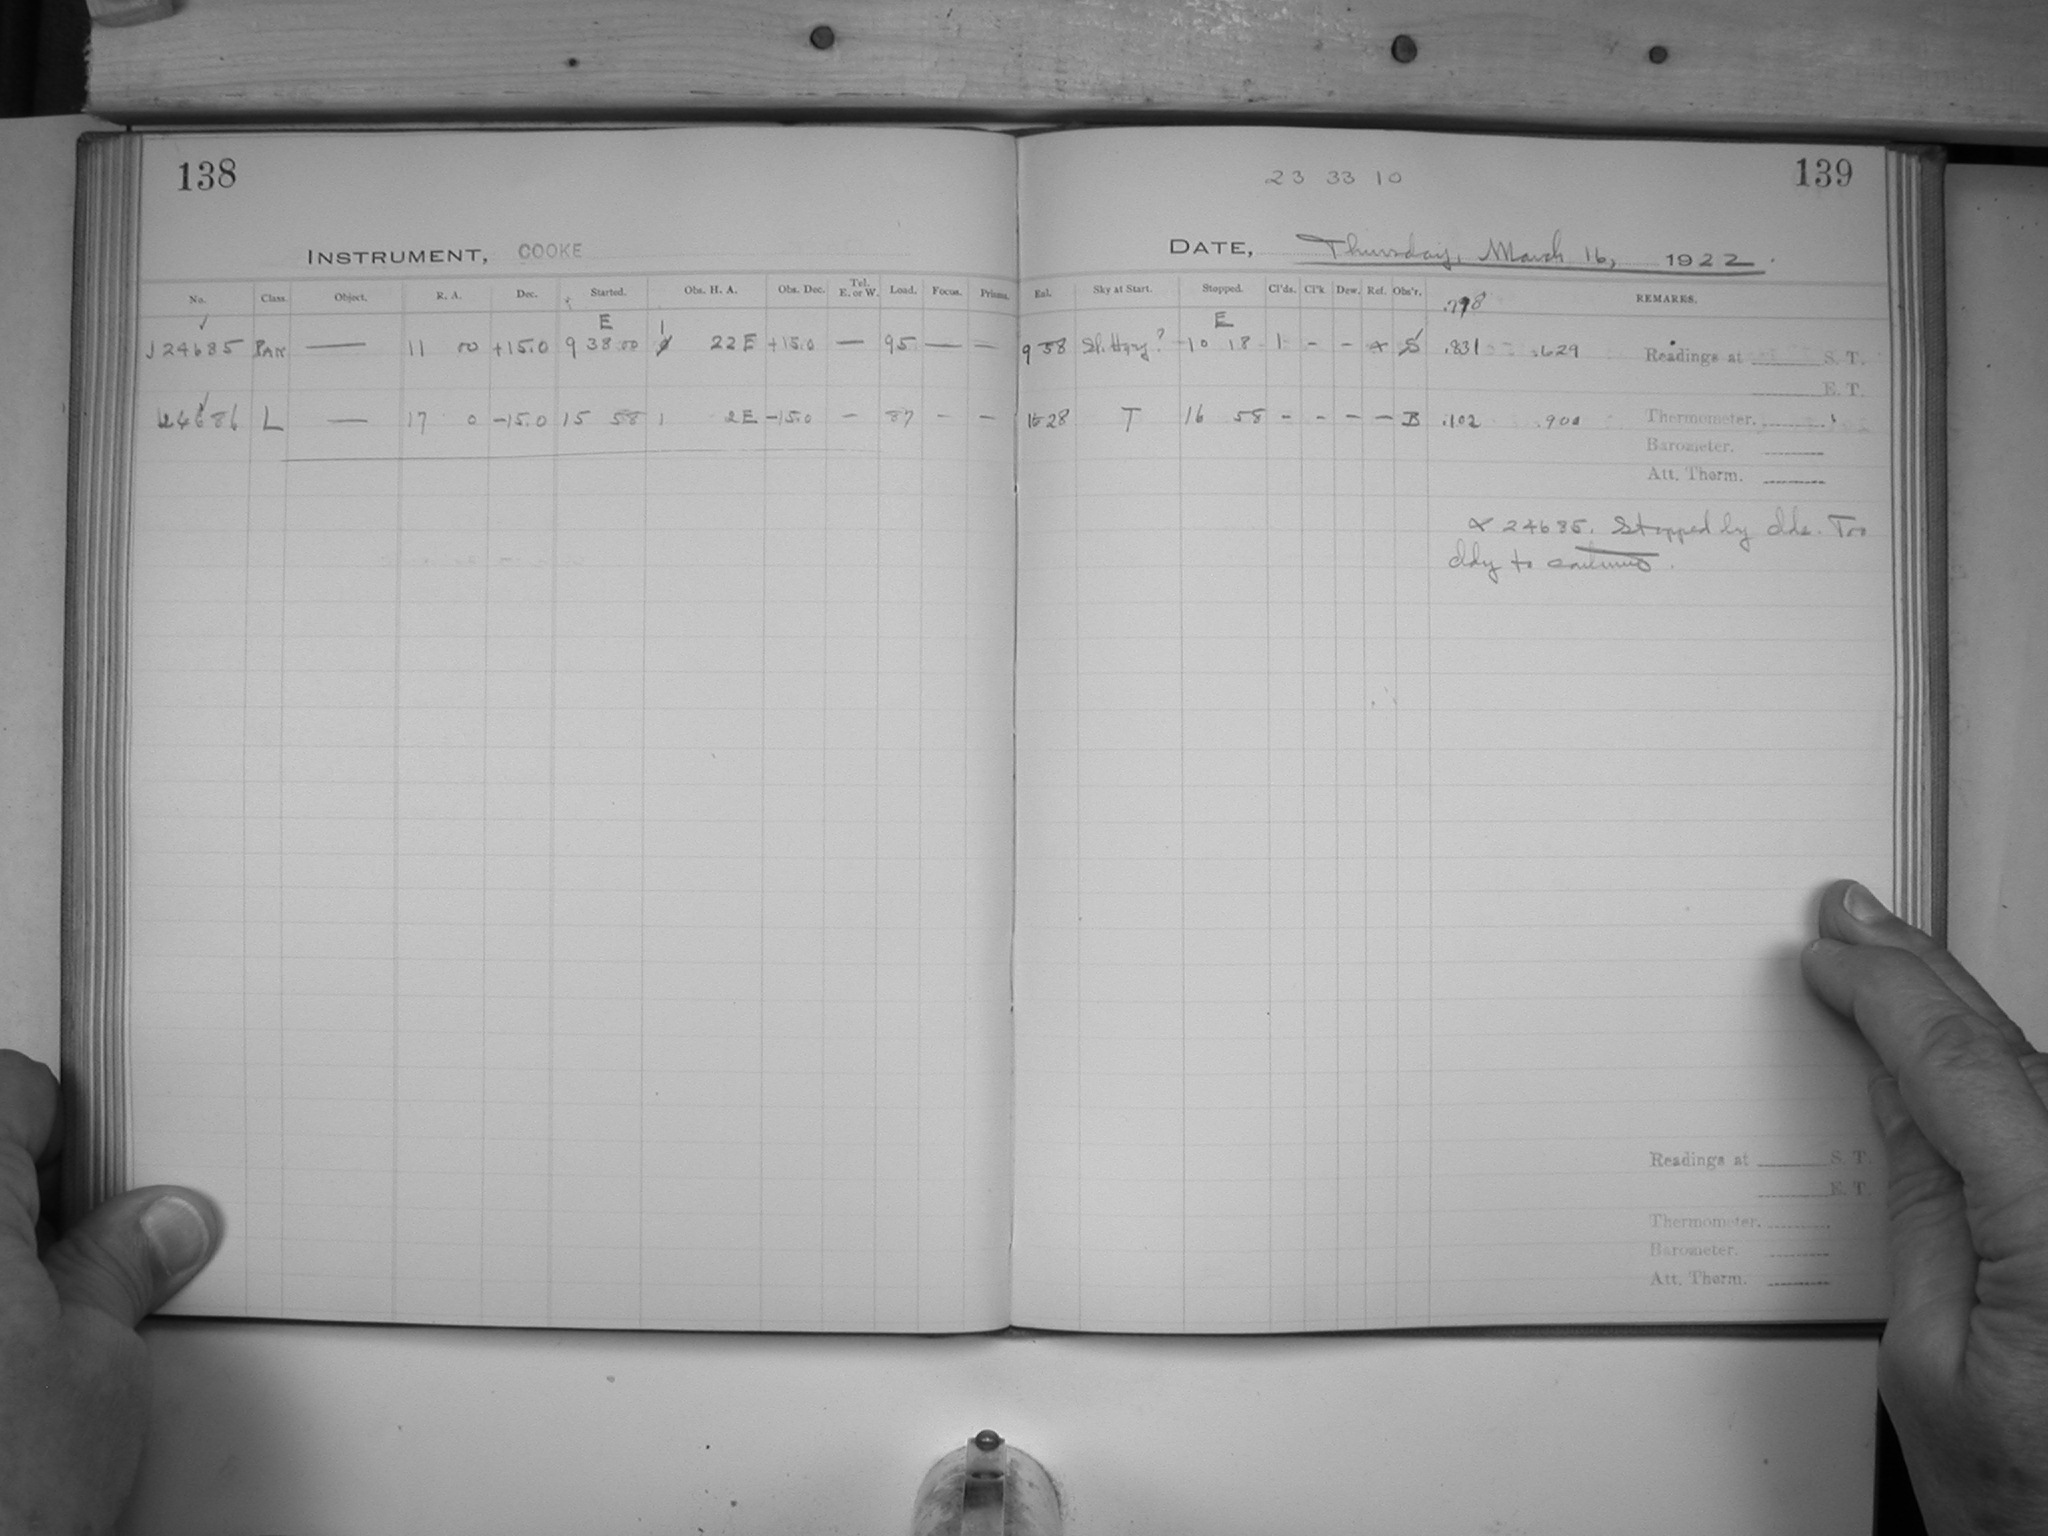 138
23 33 10
139
INSTRUMENT, COOKE
DATE, Thursday, March 16, 1922.
No. Class. Object. R. A. Dec. Started. Obs. H. A. Obs. Dec. Tel. E. or W. Load. Focus. Prisms. Eal. Sky at Start. Stopped. Cl'ds. Cl'k Dew. Ref. Obs'r. REMARKS.
E 1 E
J 24685 PAN — 11 00 +15.0 9 38 00 22 E +15.0 — 95 — — 9 58 Sl. Hazy? 10 18 1 - - S .831 .629 Readings at S. T.
E. T.
24686 L — 17 0 -15.0 15 58 1 2 E -15.0 - 87 - - 1628 T 16 58 - - - - B .102 Thermometer.
Barometer.
Att. Therm.
24685. Stopped by clds. Too
cldy to continue.
Readings at S. T.
E. T.
Thermometer.
Barometer.
Att. Therm.